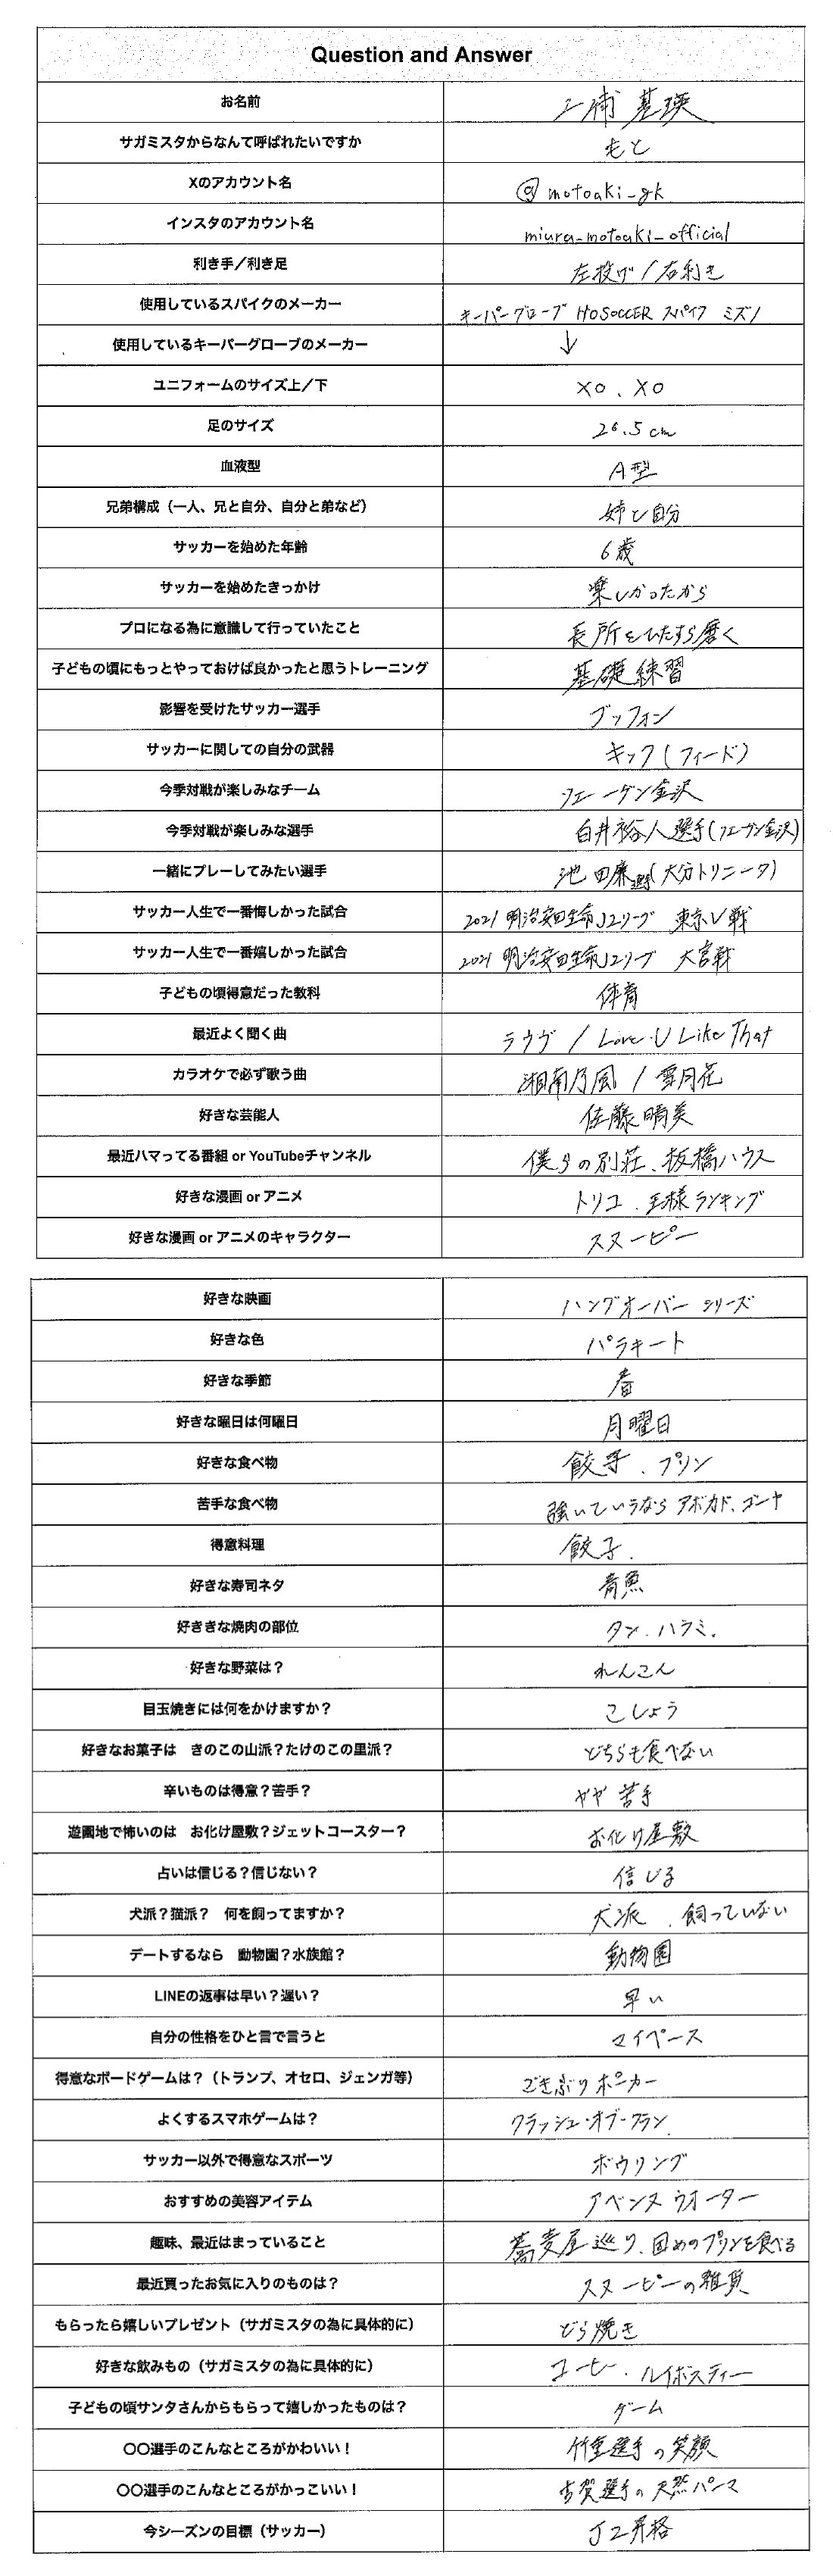 Question and Answer
お名前 三浦 基瑛
サガミスタからなんて呼ばれたいですか もと
Xのアカウント名 @motoaki_gk
インスタのアカウント名 miura_motoaki_official
利き手／利き足 左投げ/右利き
使用しているスパイクのメーカー キーパーグローブ HOSOCCER スパイク ミズノ
使用しているキーパーグローブのメーカー ↓
ユニフォームのサイズ上／下 XO、XO
足のサイズ 26.5cm
血液型 A型
兄弟構成（一人、兄と自分、自分と弟など） 姉と自分
サッカーを始めた年齢 6歳
サッカーを始めたきっかけ 楽しかったから
プロになる為に意識して行っていたこと 長所をひたすら磨く
子どもの頃にもっとやっておけば良かったと思うトレーニング 基礎練習
影響を受けたサッカー選手 ブッフォン
サッカーに関しての自分の武器 キック(フィード)
今季対戦が楽しみなチーム ツエーゲン金沢
今季対戦が楽しみな選手 白井裕人選手(ツエーゲン金沢)
一緒にプレーしてみたい選手 池田廉選手(大分トリニータ)
サッカー人生で一番悔しかった試合 2021 明治安田生命J2リーグ 東京V戦
サッカー人生で一番嬉しかった試合 2021 明治安田生命J2リーグ 大宮戦
子どもの頃得意だった教科 体育
最近よく聞く曲 ラウヴ / Love U Like That
カラオケで必ず歌う曲 湘南乃風 / 雪月花
好きな芸能人 佐藤晴美
最近ハマってる番組 or YouTubeチャンネル 僕らの別荘、板橋ハウス
好きな漫画 or アニメ トリコ、王様ランキング
好きな漫画 or アニメのキャラクター スヌーピー
好きな映画 ハングオーバー シリーズ
好きな色 パラキート
好きな季節 春
好きな曜日は何曜日 月曜日
好きな食べ物 餃子、プリン
苦手な食べ物 強いていうなら アボカド、ゴーヤ
得意料理 餃子.
好きな寿司ネタ 青魚
好ききな焼肉の部位 タン、ハラミ.
好きな野菜は？ れんこん
目玉焼きには何をかけますか？ こしょう
好きなお菓子は　きのこの山派？たけのこの里派？ どちらも食べない
辛いものは得意？苦手？ やや苦手
遊園地で怖いのは　お化け屋敷？ジェットコースター？ お化け屋敷
占いは信じる？信じない？ 信じる
犬派？猫派？　何を飼ってますか？ 犬派、飼っていない
デートするなら　動物園？水族館？ 動物園
LINEの返事は早い？遅い？ 早い
自分の性格をひと言で言うと マイペース
得意なボードゲームは？（トランプ、オセロ、ジェンガ等） ごきぶりポーカー
よくするスマホゲームは？ クラッシュ・オブ・クラン
サッカー以外で得意なスポーツ ボウリング
おすすめの美容アイテム アベンヌ ウオーター
趣味、最近はまっていること 蕎麦屋巡り、固めのプリンを食べる
最近買ったお気に入りのものは？ スヌーピーの雑貨
もらったら嬉しいプレゼント（サガミスタの為に具体的に） どら焼き
好きな飲みもの（サガミスタの為に具体的に） コーヒー、ルイボスティー
子どもの頃サンタさんからもらって嬉しかったものは？ ゲーム
〇〇選手のこんなところがかわいい！ 竹重選手の笑顔
〇〇選手のこんなところがかっこいい！ 古賀選手の天然パーマ
今シーズンの目標（サッカー） J2昇格